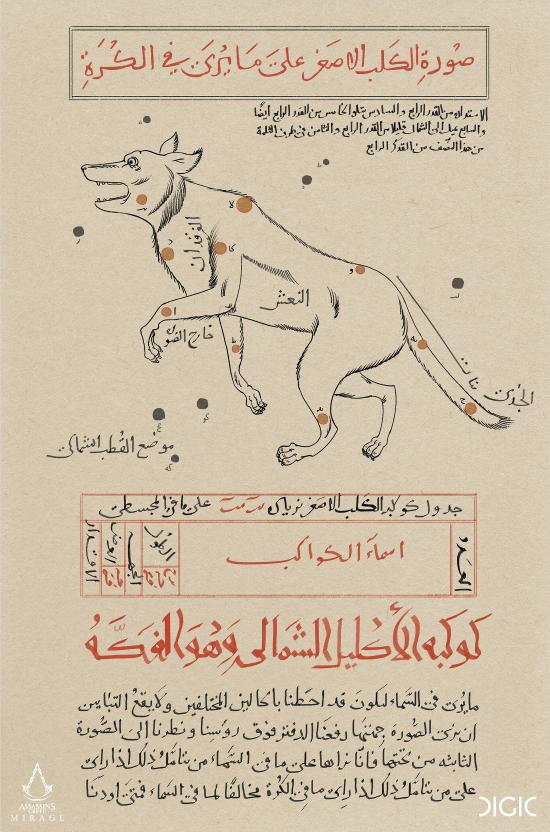 صورة الكلب الاصغر على ما يرى في الكرة
الاستدارة من القدر الرابع والسادس يتلو الخامس من القدر الرابع أيضا
والسابع يميل إلى الشمال قليلا من القدر الرابع والثامن في طرف الثلمة
من هذا النصف من القدر الرابع
الفرقدان
النعش
خارج الصورة
الجدي
بنات
موضع القطب الشمالي
جدول كوكبة الكلب الاصغر بزيادة على ما في المجسطي
العدد
اسماء الكواكب
الطول
الجهة
العرض
الاقدار
كوكبة الأكليل الشمالي وهو الفكة
ما يرى في السماء ليكون قد احطنا بالحالين المختلفين ولا يقع التباين
ان يرى الصورة جميعها رفعنا الدفتر فوق رؤسنا ونظرنا الى الصورة
الثانية من تحتها فانا نراها على ما في السماء من يتامل ذلك اذا راى
على من يتامل ذلك اذا راى ما في الكرة مخالفا لما في السماء فمتى اردنا
ASSASSIN'S
CREED
MIRAGE
DIGIC